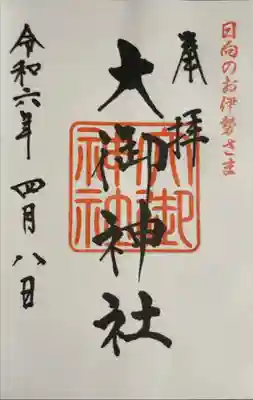 日向のお伊勢さま
奉拝
大御神社
大御神社
令和六年 四月八日